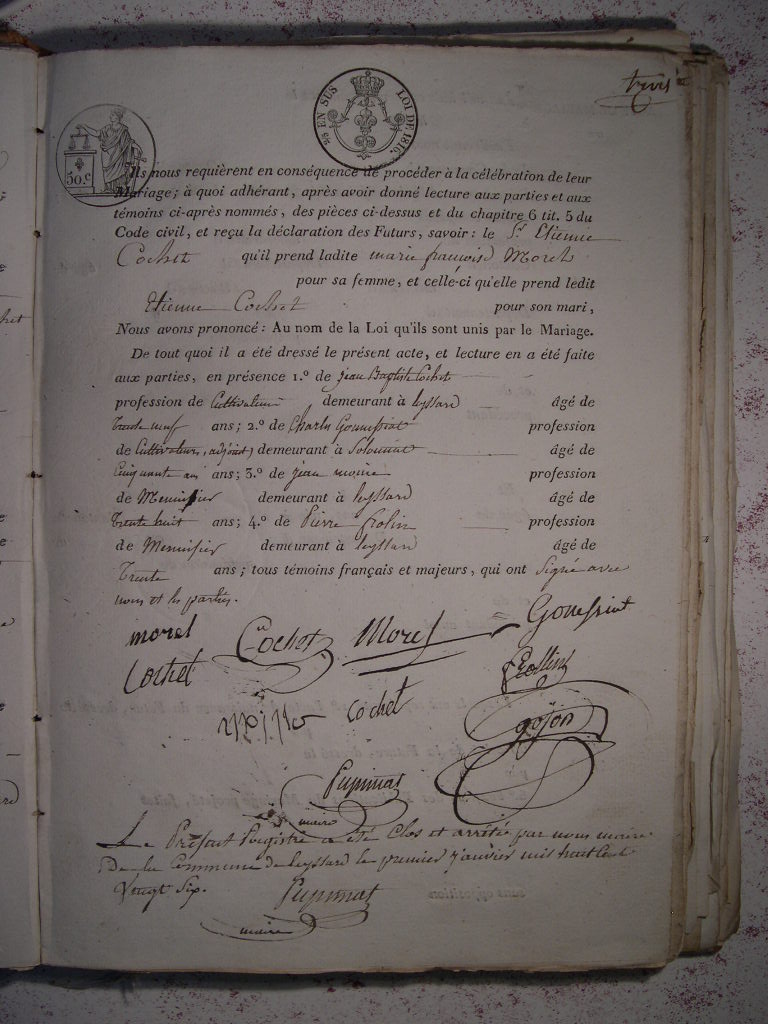 trois
EN SUS LOI DE 1816.
50.c
Ils nous requièrent en conséquence de procéder à la célébration de leur
Mariage; à quoi adhérant, après avoir donné lecture aux parties et aux
témoins ci-après nommés, des pièces ci-dessus et du chapitre 6 tit. 5 du
Code civil, et reçu la déclaration des Futurs, savoir: le Sr Etienne
Cochet qu'il prend ladite marie françoise Morel
pour sa femme, et celle-ci qu'elle prend ledit
Etienne Cochet pour son mari,
Nous avons prononcé: Au nom de la Loi qu'ils sont unis par le Mariage.
De tout quoi il a été dressé le présent acte, et lecture en a été faite
aux parties, en présence 1.º de jean Baptiste Cochet
profession de Cultivateur demeurant à leyssard âgé de
trente neuf ans; 2.º de Charles profession
de Cultivateur, adjoint) demeurant à Solomiat âgé de
Cinquante ans ans; 3.º de jean profession
de Menuisier demeurant à leyssard âgé de
trente huit ans; 4.º de Pierre profession
de Menuisier demeurant à leyssard âgé de
Trente ans; tous témoins français et majeurs, qui ont Signé avec
nous et les parties.
morel Cochet Morel
Cochet
cochet gojon
Pupunat
maire
Le Présent Registre a été Clos et arrêté par nous maire
De la Commune de leyssard le premier janvier mil huit Cent
Vingt Six.
Pupunat
maire